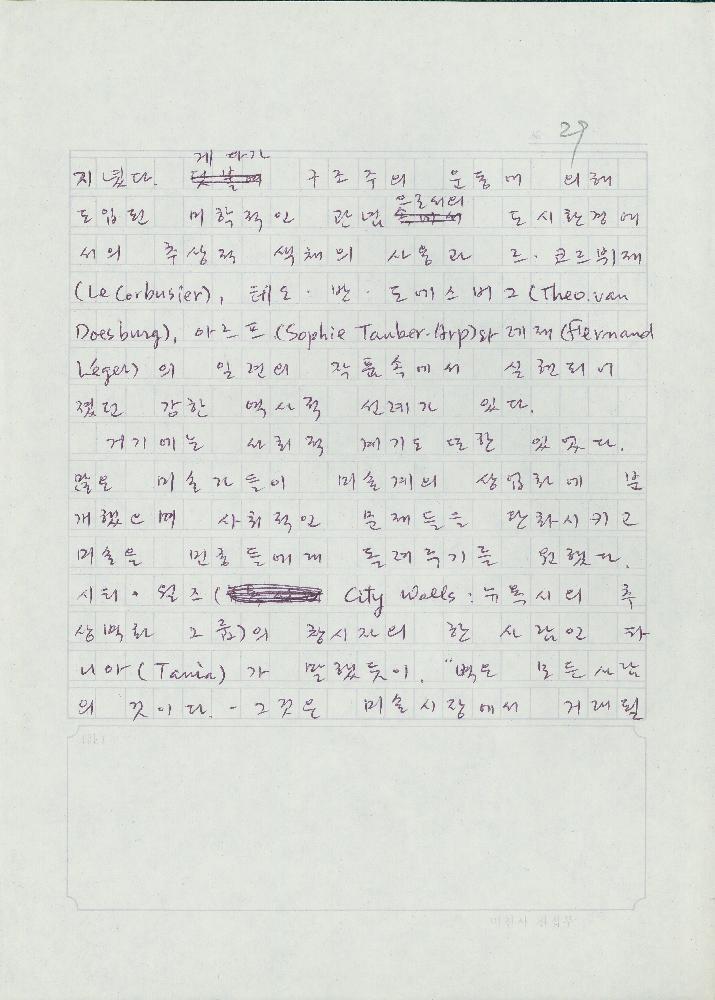 29
지녔다. 게다가 구조주의 운동에 의해
도입된 미학적인 관념으로서의 도시환경에
서의 추상적 색채의 사용과 르·코르뷔제
(Le Corbusier), 테오·반·도에스버그(Theo.van
Doesburg), 아르프(Sophie Tauber-Arp)와 레제(Fernand
Léger)의 일련의 작품속에서 실현되어
졌던 강한 역사적 선례가 있다.
거기에는 사회적 계기도 또한 있었다.
많은 미술가들이 미술계의 상업화에 분
개했으며 사회적인 문제들을 탄화시키고
미술을 민중들에게 돌려주기를 원했다.
시티·월즈( City Walls: 뉴욕시의 추
상벽화 그룹)의 창시자의 한 사람인 타
니아(Tania)가 말했듯이, "벽은 모든 사람
의 것이다. - 그것은 미술시장에서 거래될